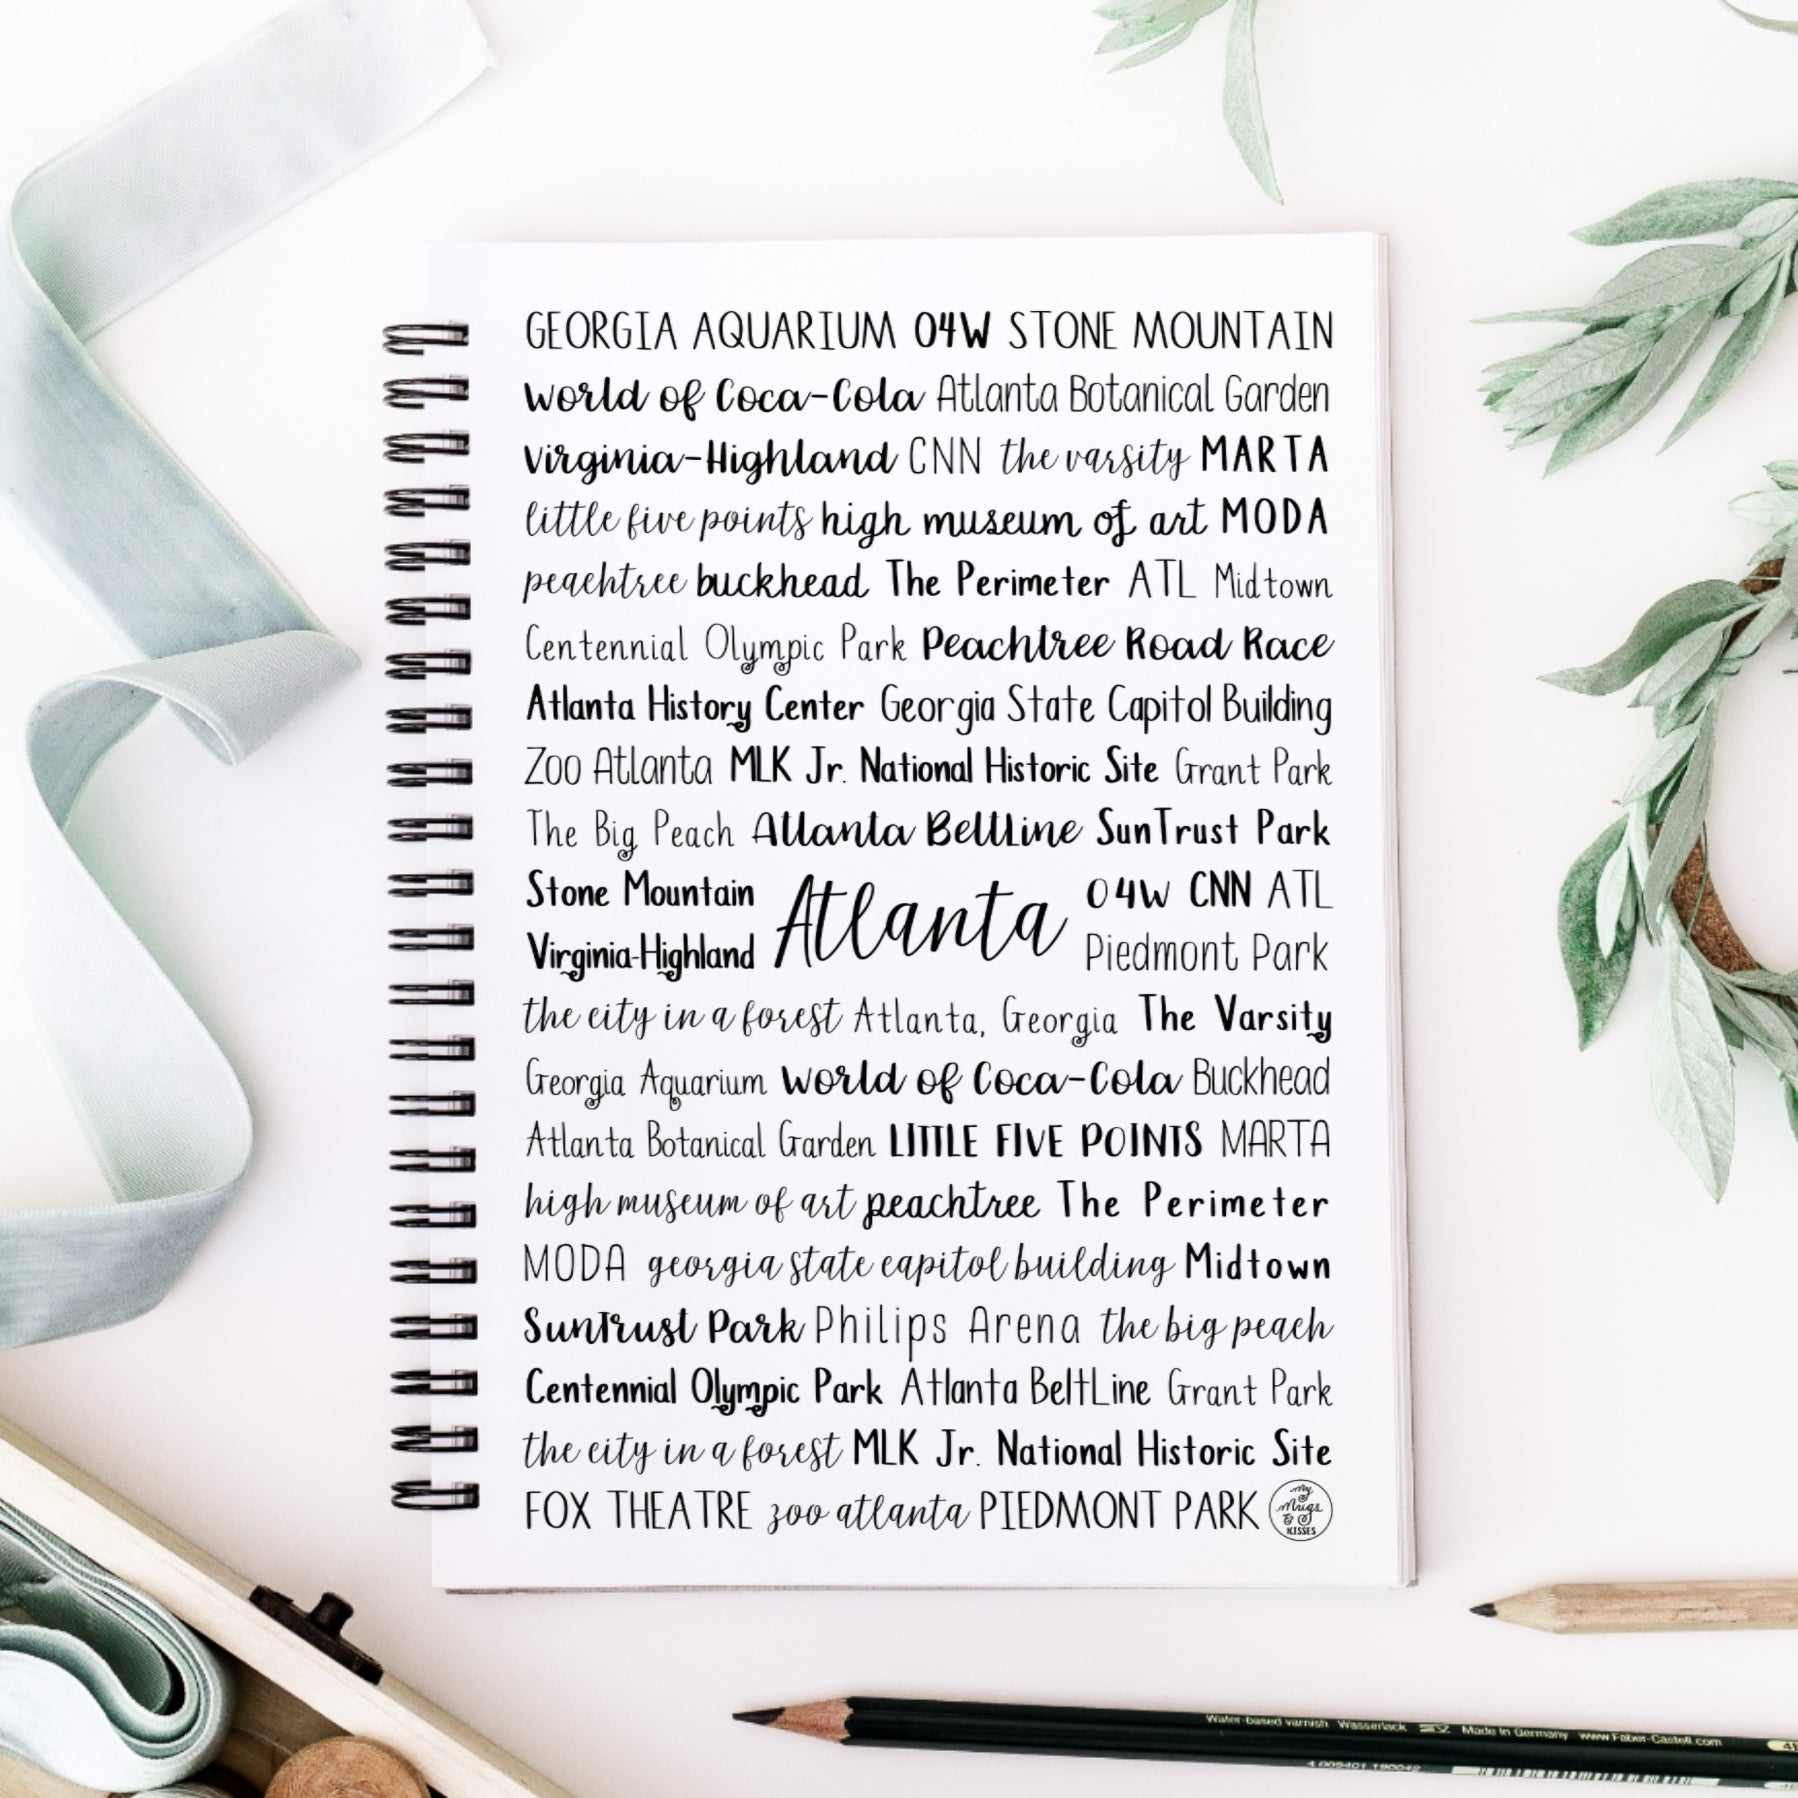 GEORGIA AQUARIUM 04W STONE MOUNTAIN
World of Coca-Cola Atlanta Botanical Garden
Virginia-Highland CNN the varsity MARTA
little five points high museum of art MODA
peachtree buckhead The Perimeter ATL Midtown
Centennial Olympic Park Peachtree Road Race
Atlanta History Center Georgia State Capitol Building
Zoo Atlanta MLK Jr. National Historic Site Grant Park
The Big Peach Atlanta BeltLine SunTrust Park
Stone Mountain Atlanta 04W CNN ATL
Virginia-Highland Piedmont Park
the city in a forest Atlanta, Georgia The Varsity
Georgia Aquarium World of Coca-Cola Buckhead
Atlanta Botanical Garden LITTLE FIVE POINTS MARTA
high museum of art peachtree The Perimeter
MODA georgia state capitol building Midtown
SunTrust Park Philips Arena the big peach
Centennial Olympic Park Atlanta BeltLine Grant Park
the city in a forest MLK Jr. National Historic Site
FOX THEATRE zoo atlanta PIEDMONT PARK
my
Mugs
&
KISSES
Water-based varnish Wasserlack Made in Germany www.Faber-Castell.com
4 005401 190042